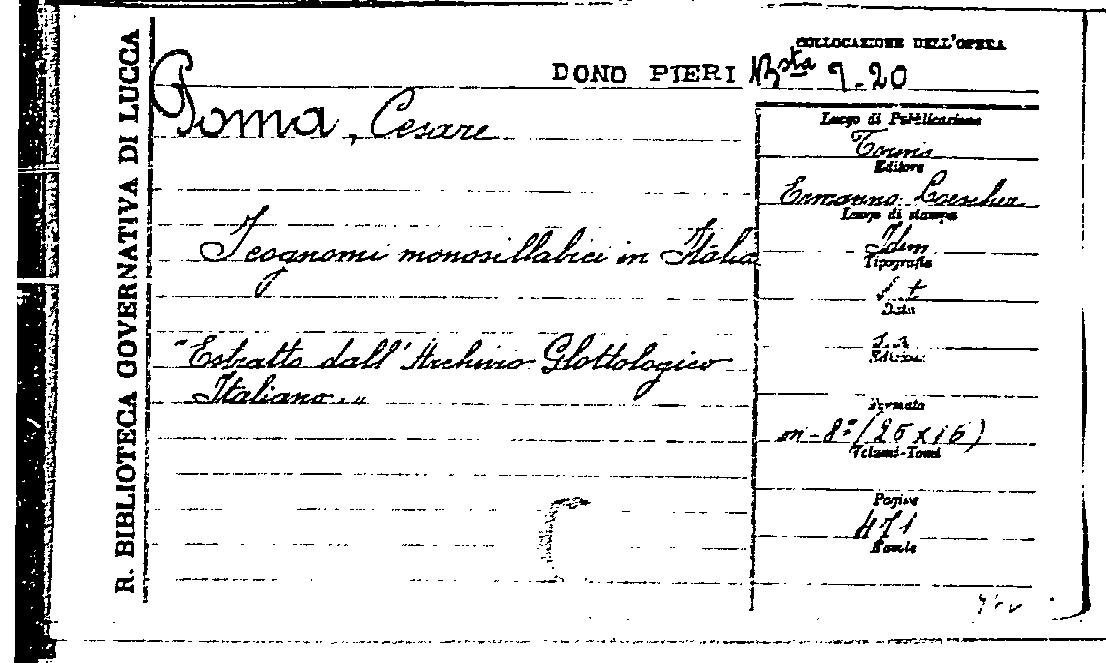 R. BIBLIOTECA GOVERNATIVA DI LUCCA
COLLOCAZIONE DELL'OPERA
DONO PIERI Bsta 9-20
Poma, Cesare
I cognomi monosillabici in Italia
"Estratto dall'Archivio Glottologico
Italiano"
Luogo di Pubblicazione
Torino
Editore
Ermanno Loescher
Luogo di stampa
Idem
Tipografia
s. t
Data
Edizione
Formato
in-8° (25 x 16)
Volumi-Tomi
Pagine
471